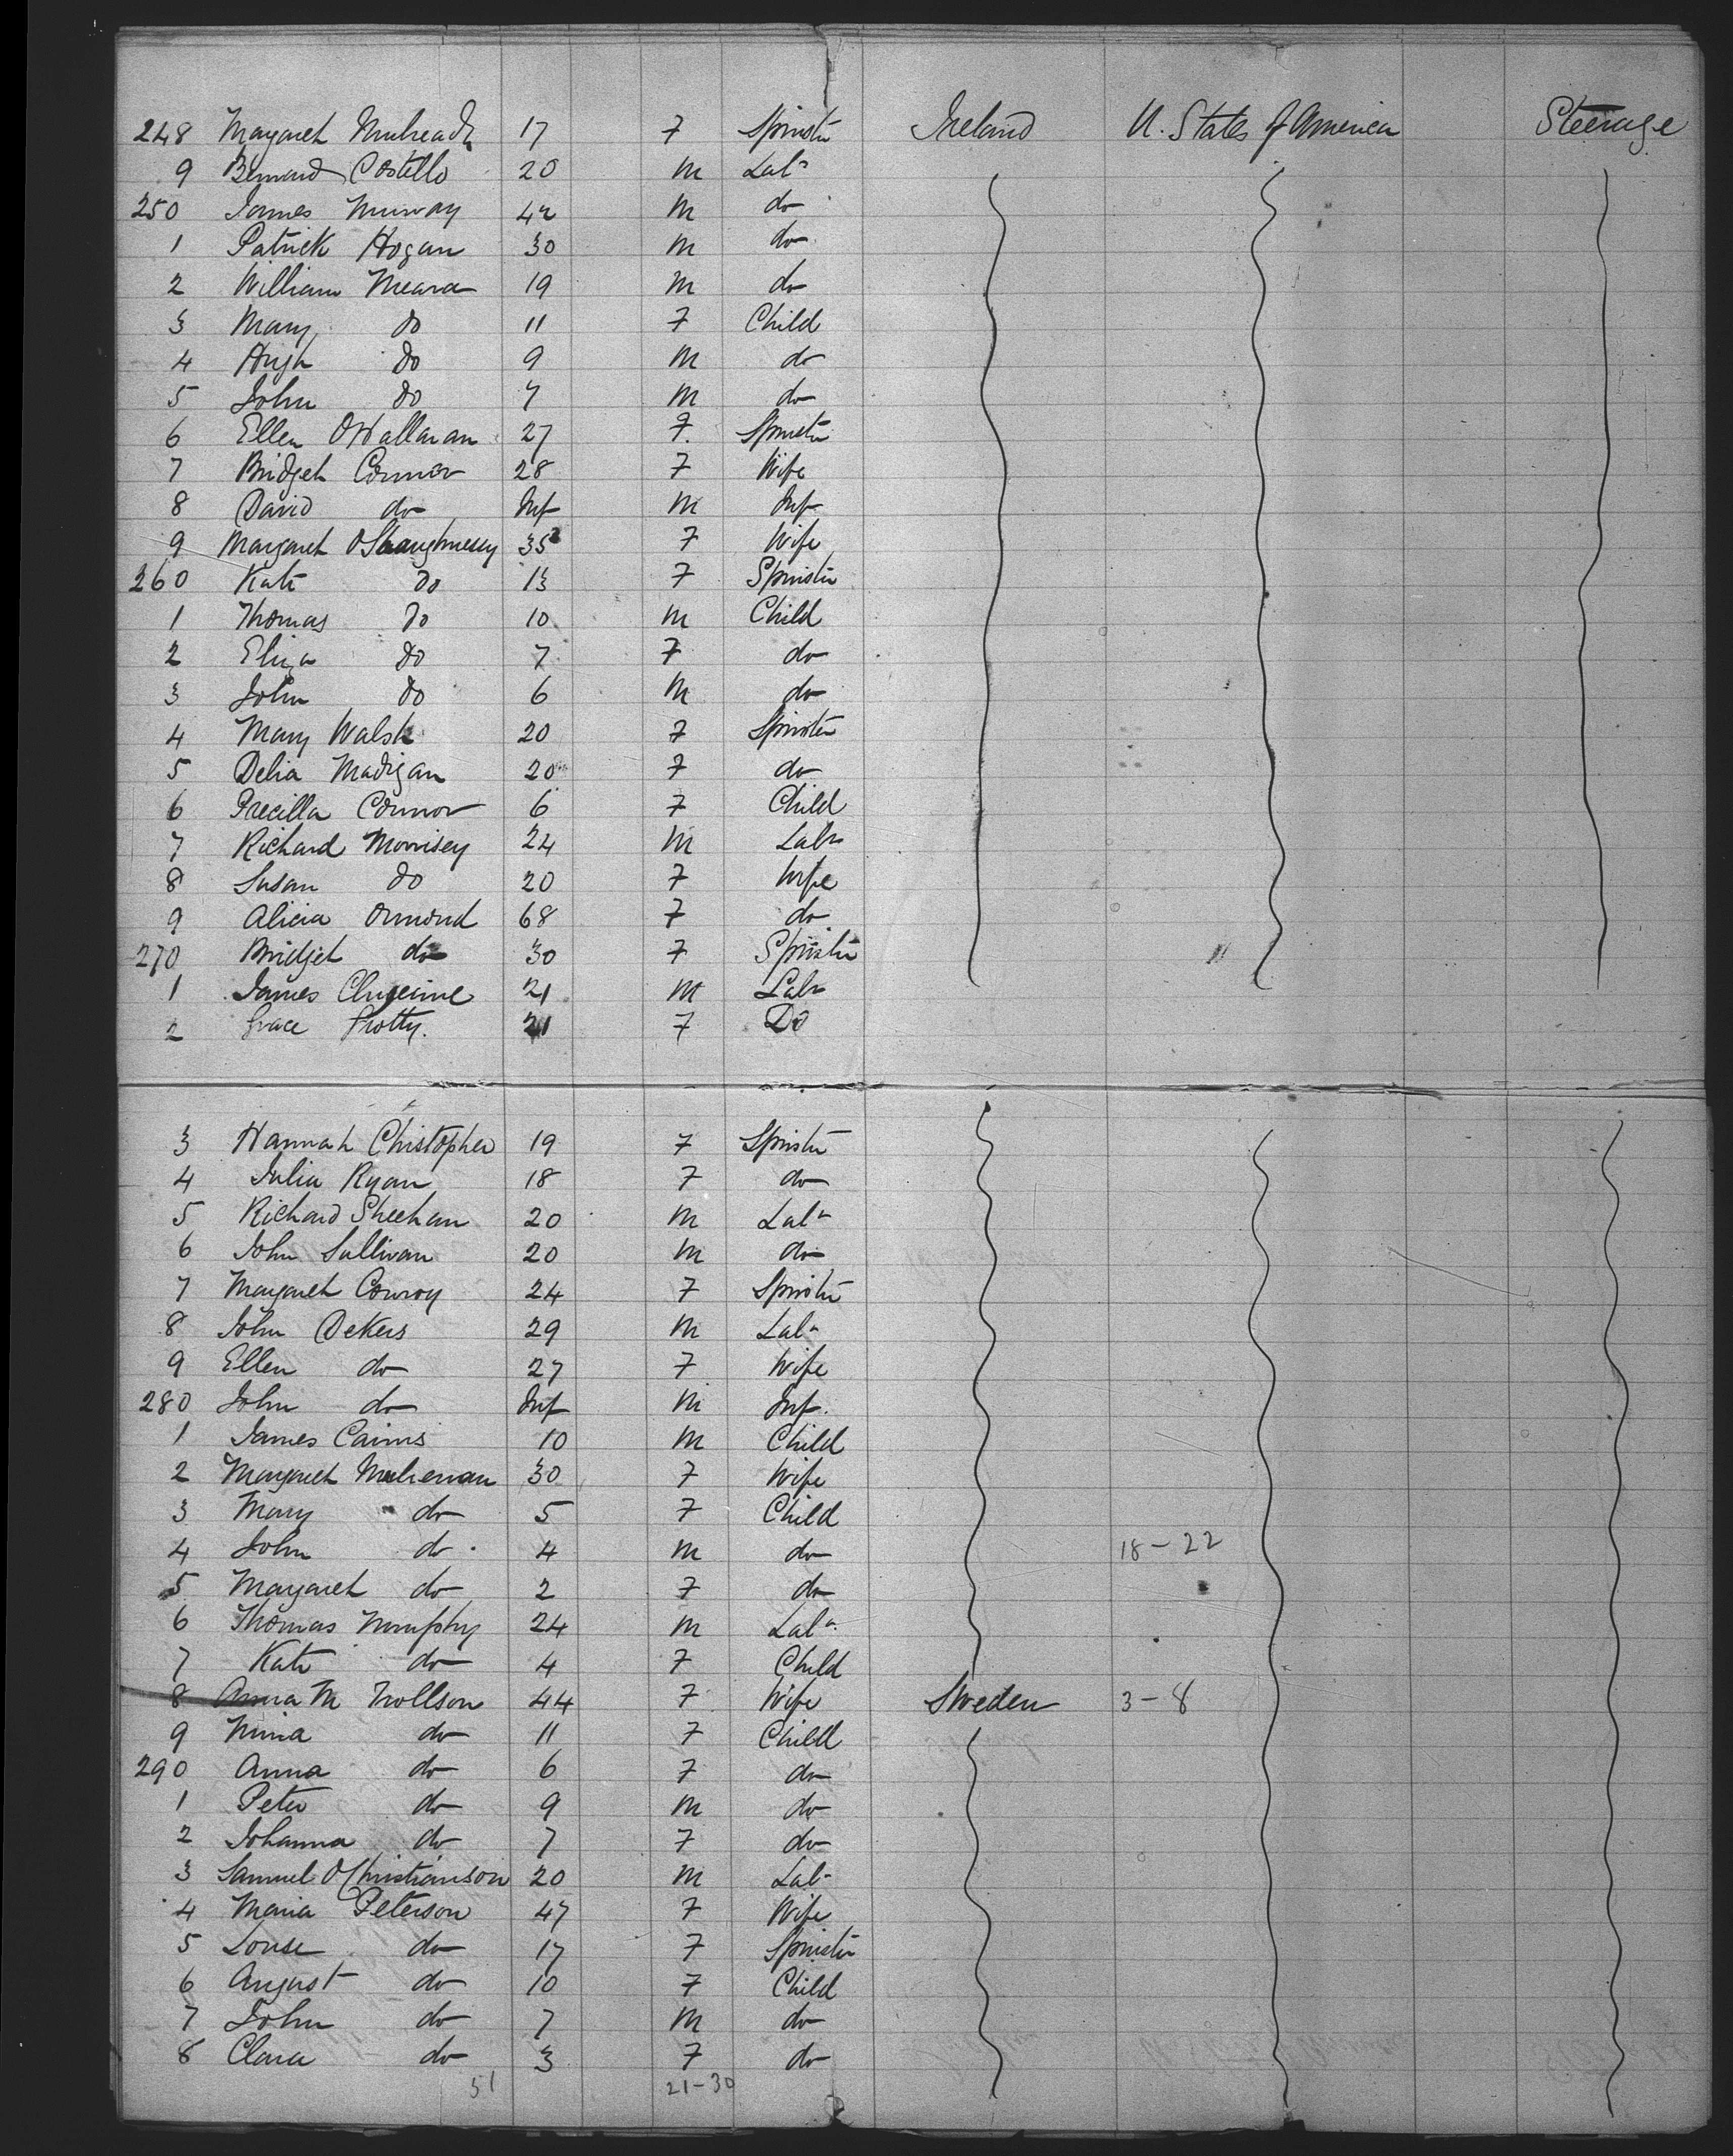 248 Margaret 17 F Spinstr Ireland U. States of America Steerage
9 Bernard Costello 20 M Labr
250 James Murray 42 M do
1 Patrick Hogan 30 M do
2 William Meara 19 M do
3 Mary do 11 F Child
4 Hugh do 9 M do
5 John do 7 M do
6 Ellen OHallaran 27 F. Spinstr
7 Bridget Connor 28 F Wife
8 David do Inf M Inf
9 Margaret OShaughnessy 35 F Wife
260 Kate do 13 F Spinstr
1 Thomas do 10 M Child
2 Eliza do 7 F do
3 John do 6 M do
4 Mary Walsh 20 F Spinstr
5 Delia Madigan 20 F do
6 Precilla Connor 6 F Child
7 Richard Morrisey 24 M Labr
8 Susan do 20 F Wife
9 Alicia Ormond 68 F do
270 Bridget do 30 F Spinstr
1 James 21 M Labr
2 Grace Protty. 21 F Do
3 Hannah Christopher 19 F Spinstr
4 Julia Ryan 18 F do
5 Richard Sheehan 20 M Labr
6 John Sullivan 20 M do
7 Margaret Conroy 24 F Spinstr
8 John Dekers 29 M Labr
9 Ellen do 27 F Wife
280 John do Inf M Inf.
1 James Cairns 10 M Child
2 Margaret Mulrenan 30 F Wife
3 Mary do 5 F Child
4 John do 4 M do 18-22
5 Margaret do 2 F do
6 Thomas Murphy 24 M Labr
7 Kate do 4 F Child
8 Anna M Trollson 44 F Wife Sweden 3-8
9 Nina do 11 F Child
290 Anna do 6 F do
1 Peter do 9 M do
2 Johanna do 7 F do
3 Samuel O Christianson 20 M Labr
4 Maria Peterson 47 F Wife
5 Louse do 17 F Spinstr
6 August do 10 F Child
7 John do 7 M do
8 Clara do 3 F do
51 21-30